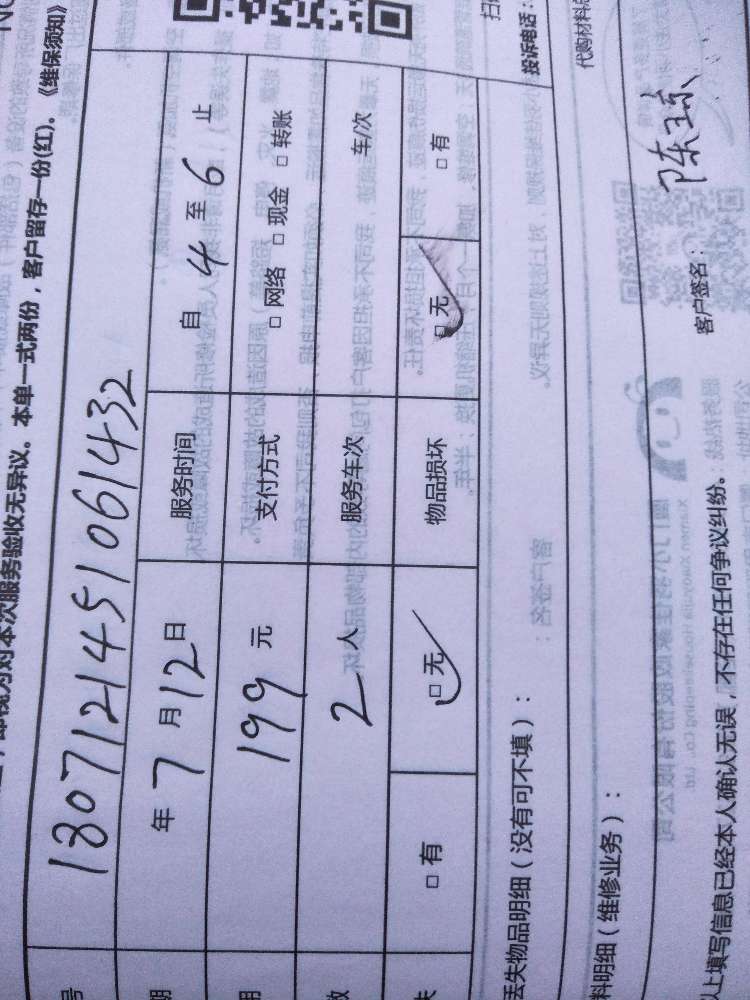 即视为对本次服务验收无异议。本单一式两份，客户留存一份(红)。《维保须知》
号 1807121451061432
期 年 7 月 12 日 服务时间 自 4 至 6 止
用 199 元 支付方式 □ 网络 □ 现金 □ 转账
数 2 人 服务车次 车/次
失 □ 有 □ 无 物品损坏 □ 无 □ 有
丢失物品明细（没有可不填）：
料明细（维修业务）：
代购材料总
以上填写信息已经本人确认无误，不存在任何争议纠纷。
客户签名：
投诉电话：
扫